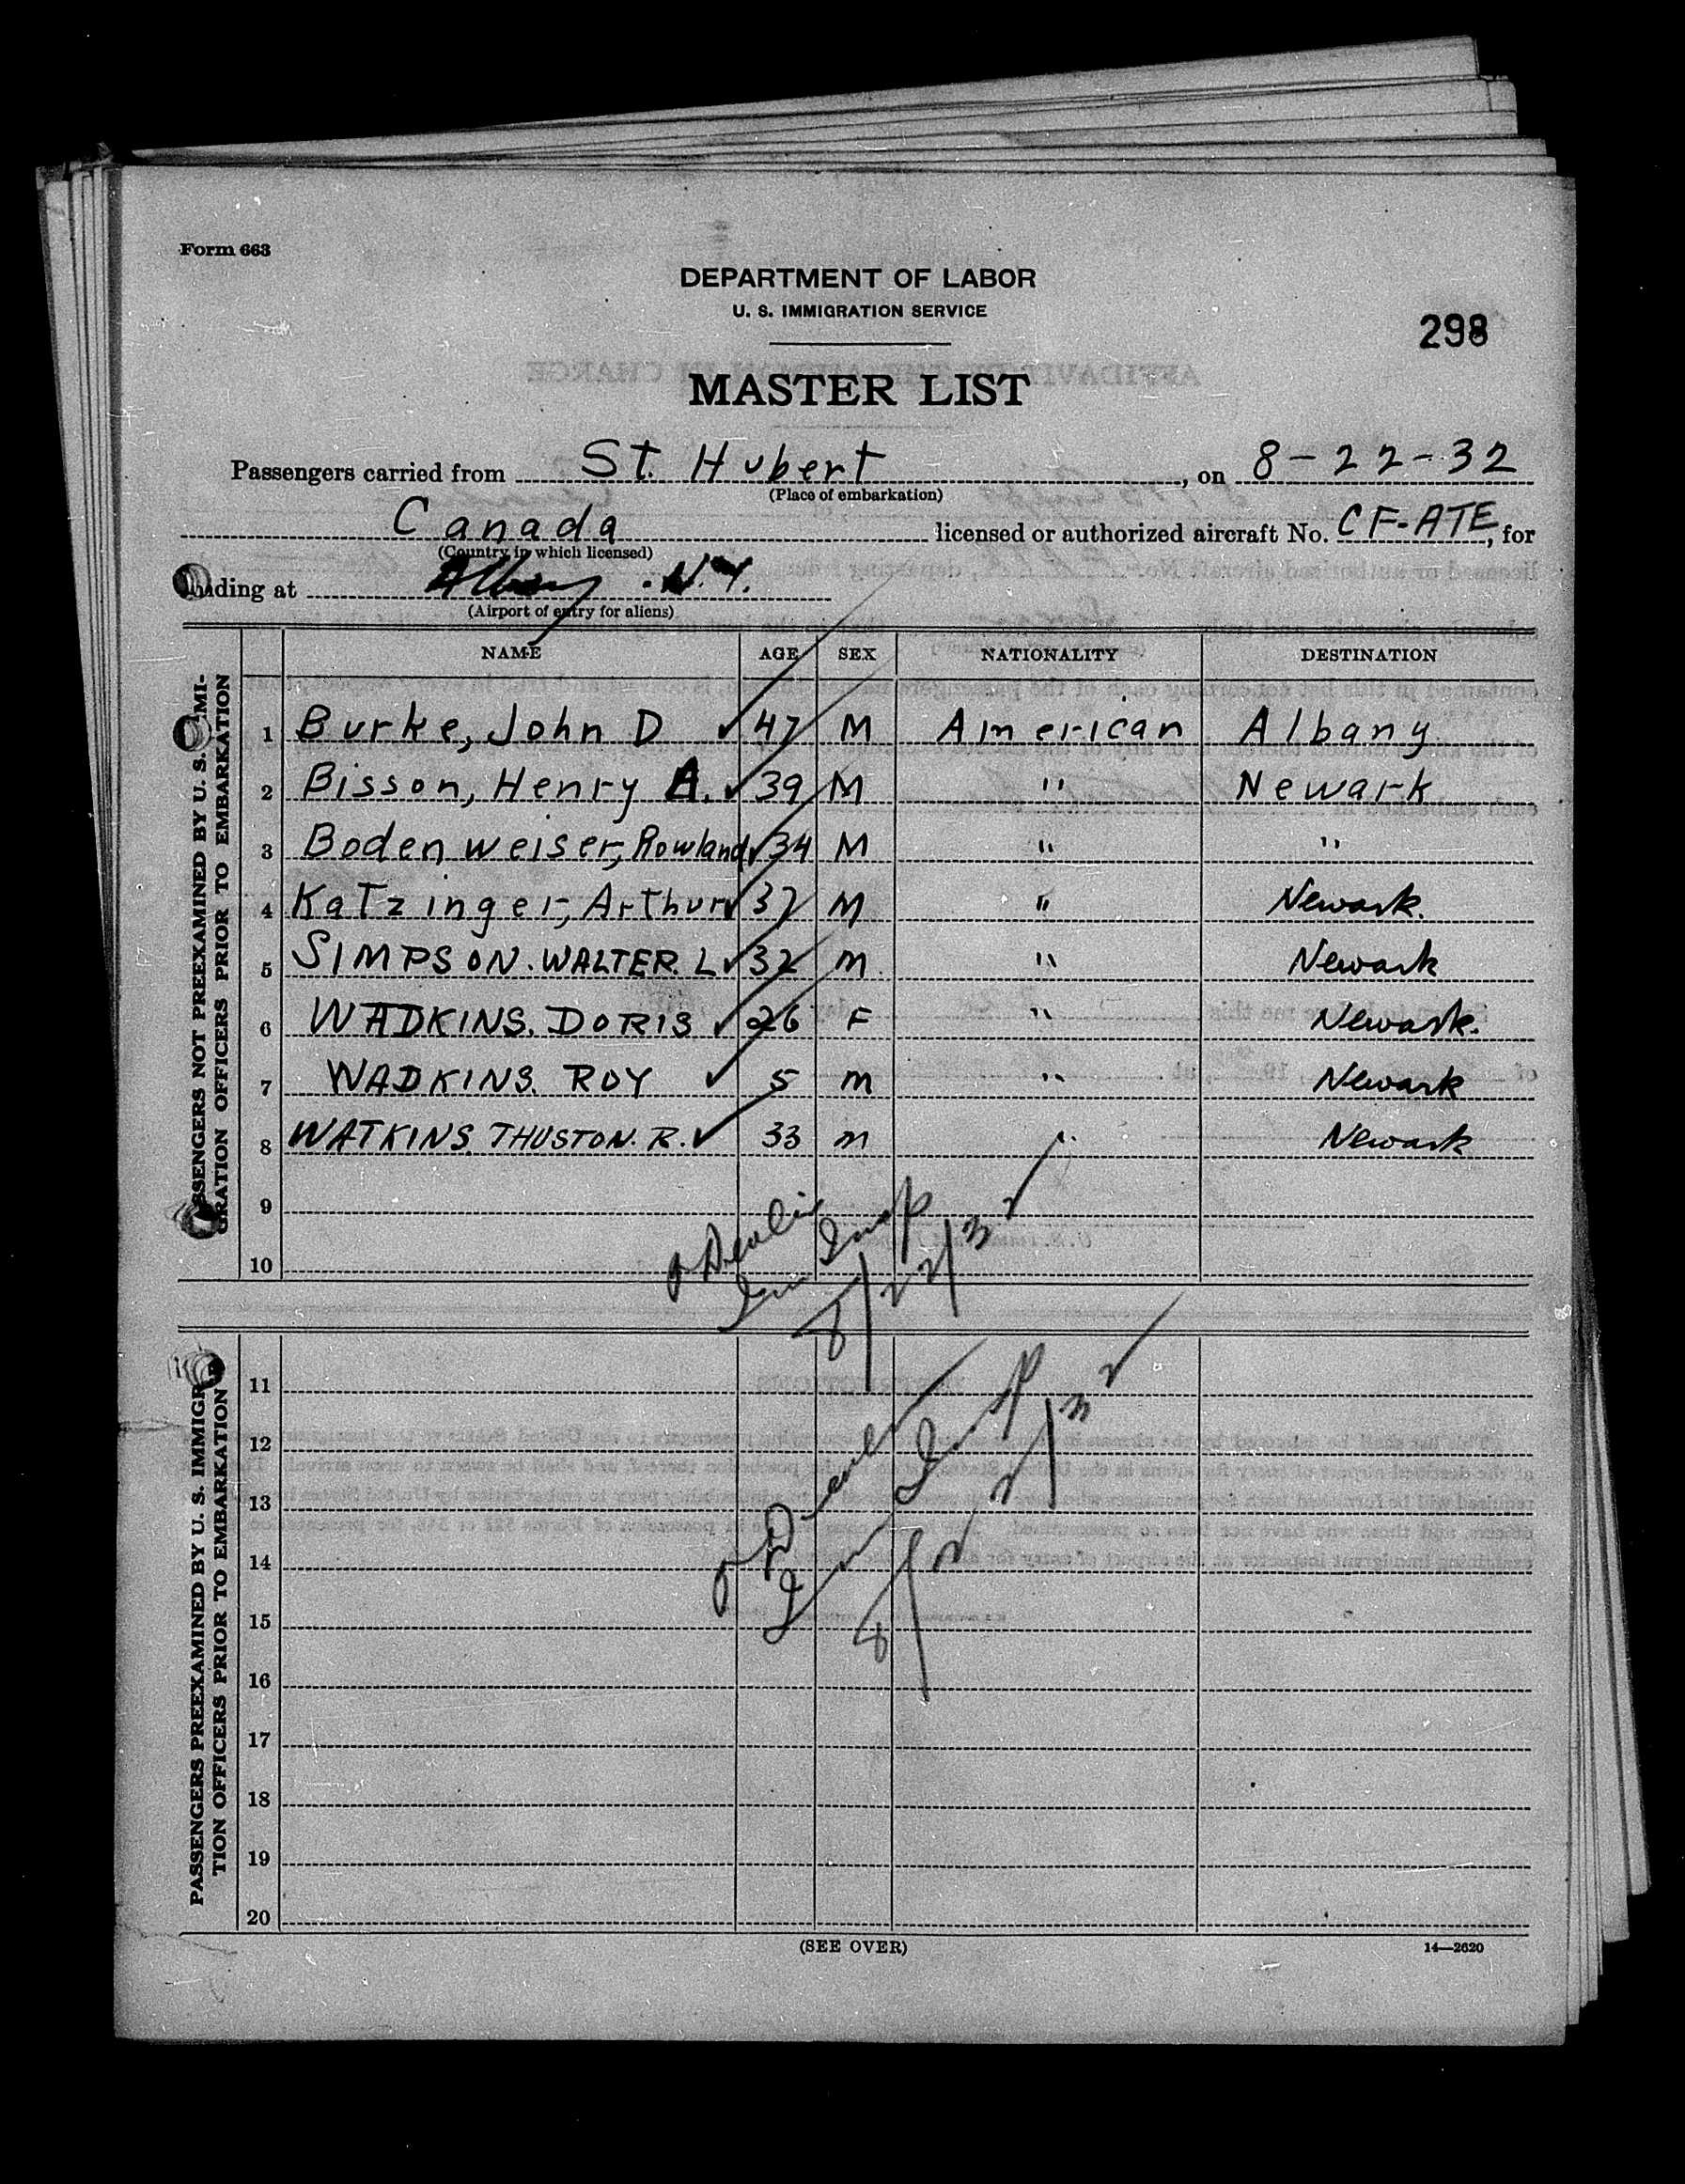 Form 663
DEPARTMENT OF LABOR
U. S. IMMIGRATION SERVICE
298
MASTER LIST
Passengers carried from St. Hubert, on 8-22-32
(Place of embarkation)
Canada licensed or authorized aircraft No. CF-ATE, for
(Country in which licensed)
landing at Albany. N.Y.
(Airport of entry for aliens)
NAME AGE SEX NATIONALITY DESTINATION
PASSENGERS NOT PREEXAMINED BY U. S. IMMI-
GRATION OFFICERS PRIOR TO EMBARKATION
1 Burke, John D ✓ 47 M American Albany
2 Bisson, Henry A. ✓ 39 M " Newark
3 Bodenweiser, Rowland ✓ 34 M " "
4 Katzinger, Arthur ✓ 37 M " Newark.
5 SIMPSON. WALTER. L ✓ 32 m " Newark
6 WADKINS. DORIS ✓ 26 F " Newark.
7 WADKINS. ROY ✓ 5 m " Newark
8 WATKINS. THUSTON. R. ✓ 33 m " Newark
9
10
Imm Insp
8/22/32
PASSENGERS PREEXAMINED BY U. S. IMMIGRA-
TION OFFICERS PRIOR TO EMBARKATION
11
12
13
14
15
16
17
18
19
20
Imm Insp
8/22/32
(SEE OVER)
14—2620